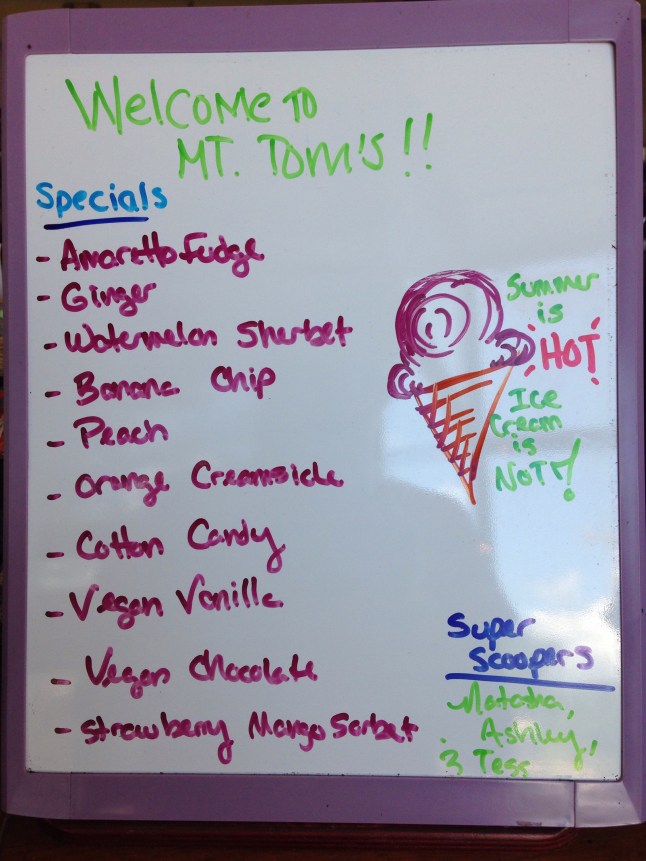 Welcome to
Mt. Tom's!!
Specials
- Amaretto Fudge
- Ginger
- Watermelon Sherbet
- Banana Chip
- Peach
- Orange Creamsicle
- Cotton Candy
- Vegan Vanilla
- Vegan Chocolate
- Strawberry Mango Sorbet
Summer
is
HOT!
Ice
Cream
is
NOT!
Super
Scoopers
Natasha,
Ashley,
& Tess